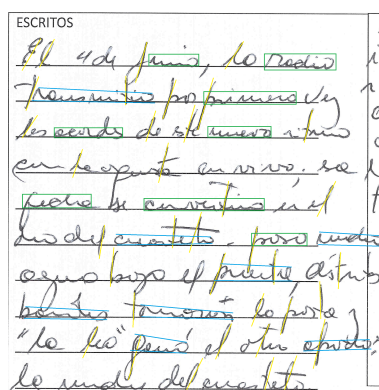 ESCRITOS
El 4 de Junio, la radio
transmitio por primera vez
los acords de ste nuevo ritmo
con la orquesta en vivo. sa
fecha se convertiria en el
dia del cuarteto. paso mucha
agua bajo el puente, distintas
bandas tomaron la posta y
"La Leo" ganó el otro apodo:
la mudis del cuarteto